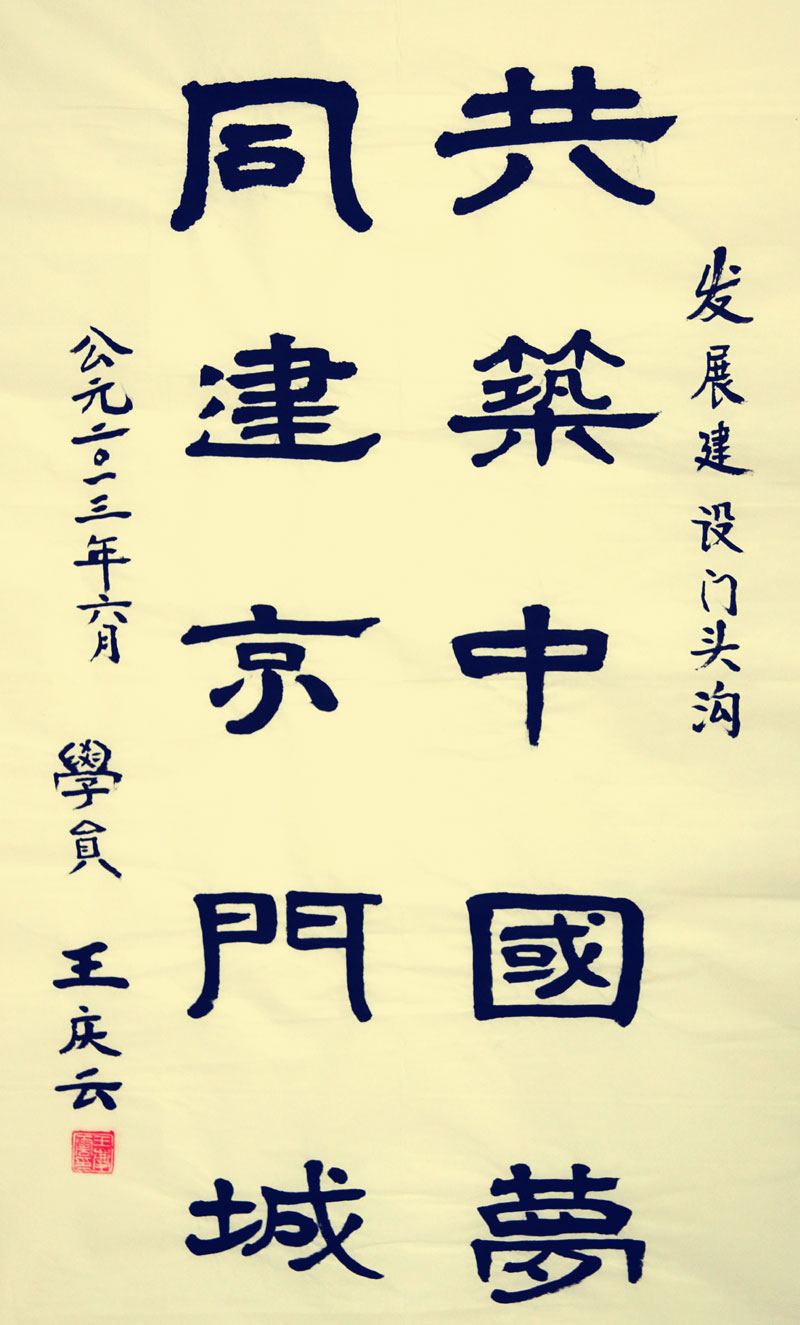 发展建设门头沟
共築中國夢
同建京門城
公元二〇一三年六月
學員 王庆云